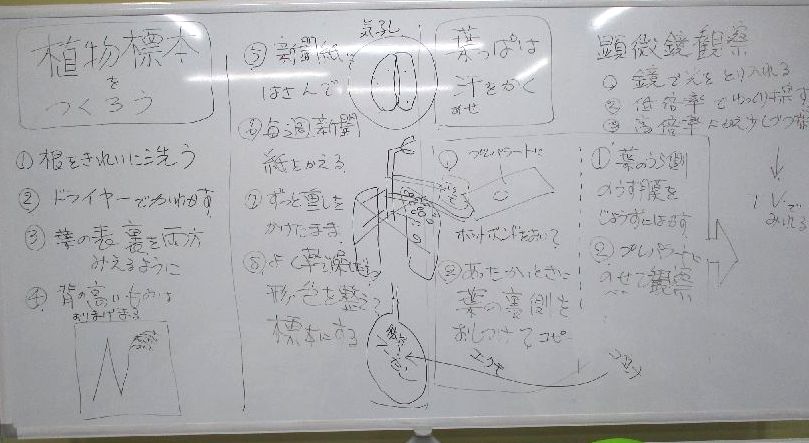 植物標本
を
つくろう
① 根をきれいに洗う
② ドライヤーでかわかす
③ 葉の表裏を両方
みえるように
④ 背の高いものは
おりまげる
⑤ 新聞紙に
はさんで
⑥ 毎週新聞
紙をかえる
⑦ ずっと重しを
かけたまま
⑧ よく乾燥したら
形、色を整えて
標本にする
気孔
葉っぱは
汗をかく
あせ
① プレパラートに
ホットボンドをおいて
② あったかいときに
葉の裏側を
おしつけてコピー
顕微鏡観察
① 鏡で光をとり入れる
② 低倍率でゆっくり探す
③ 高倍率に
① 葉のうら側
のうす膜を
じょうずにはがす
② プレパラートに
のせて観察